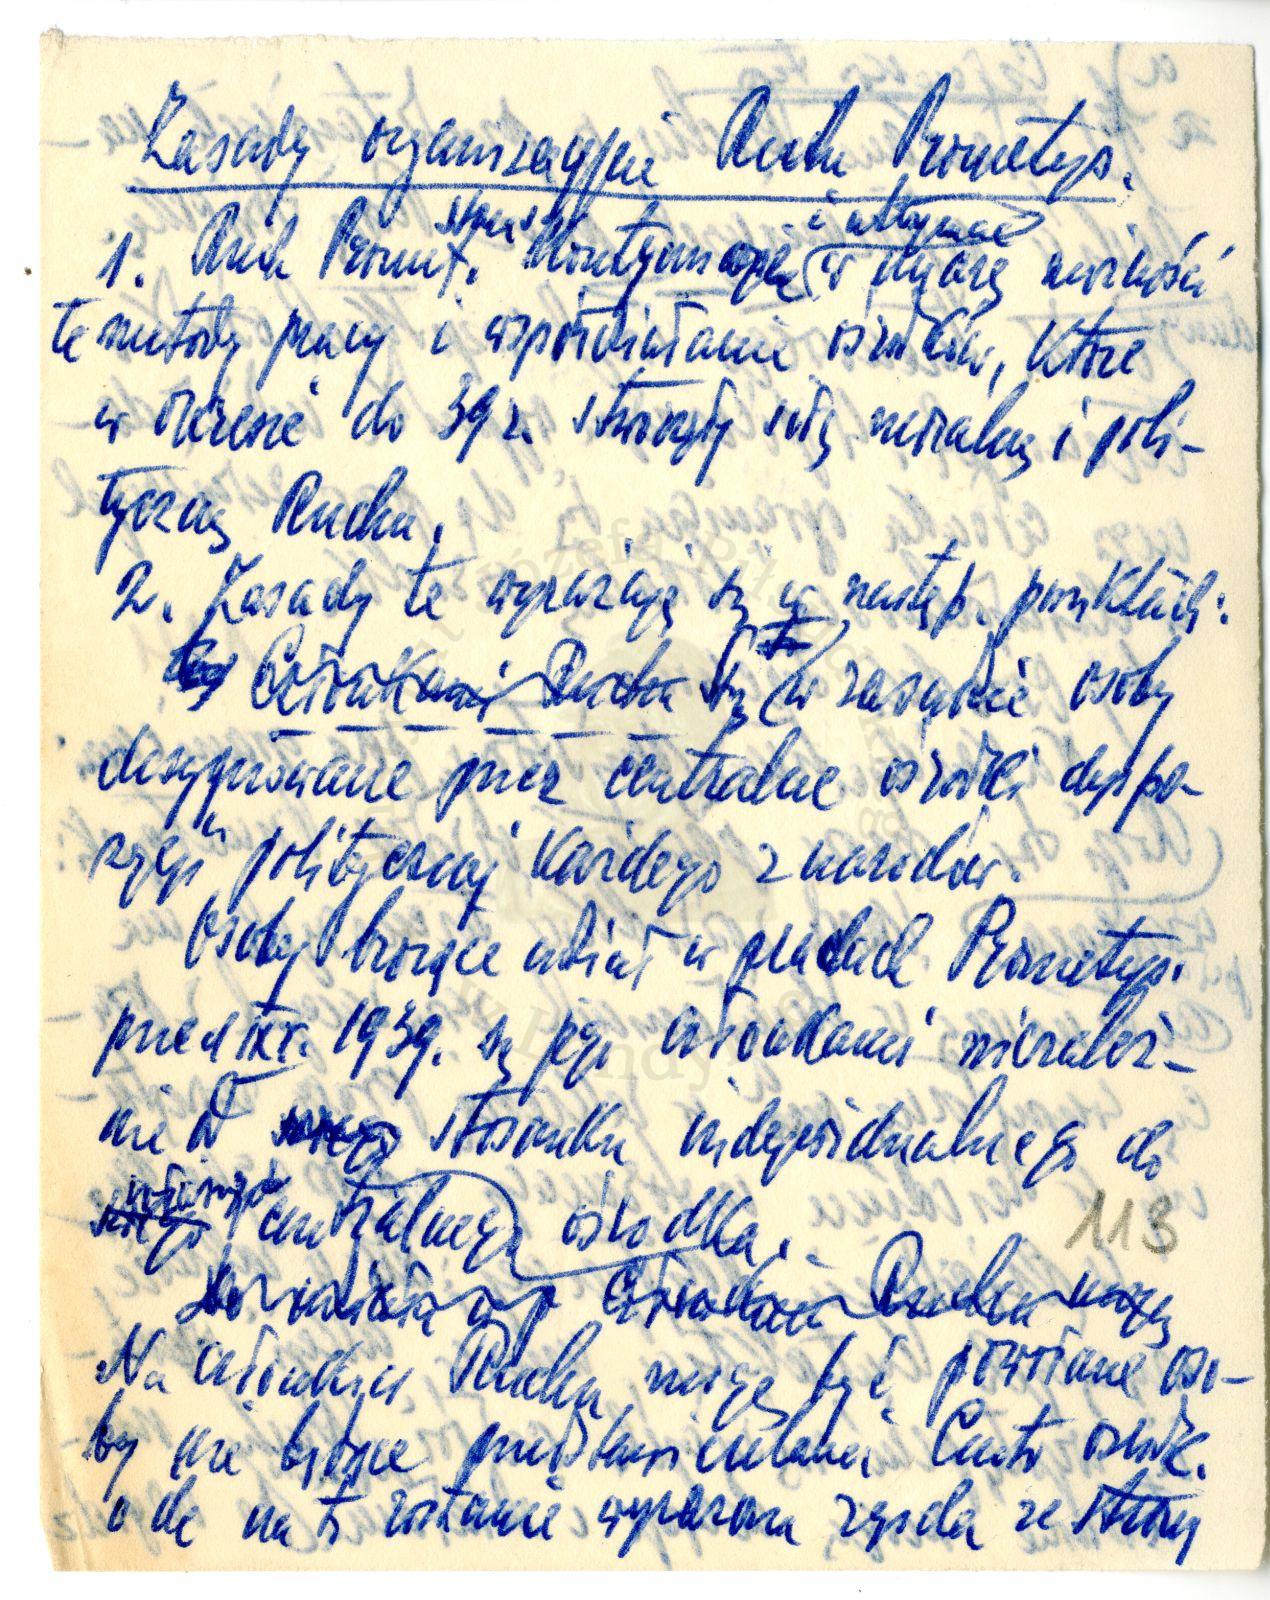 Zasady organizacyjne Ruchu Prometejs.
1. Ruch Promet. stara się kontynuować i utrzymać w miarę możności
te metody pracy i współdziałanie ośrodków, które
w okresie do 39 r. stworzyły siłę moralną i poli-
tyczną Ruchu.
2. Zasady te wyrażają się w następ. punktach:
Członkami Ruchu są w zasadzie osoby
desygnowane przez centralne ośrodki dyspo-
zycji politycznej każdego z narodów.
Osoby biorące udział w pracach Prometejs.
przed IX. 1939. są jego członkami niezależ-
nie od stosunku indywidualnego do
właściwego centralnego ośrodka.
Członkami Ruchu mogą
Na członków Ruchu mogą być powołane oso-
by nie będące przedstawicielami Centr. ośrodk.
o ile na to zostanie wyrażona zgoda ze strony
113